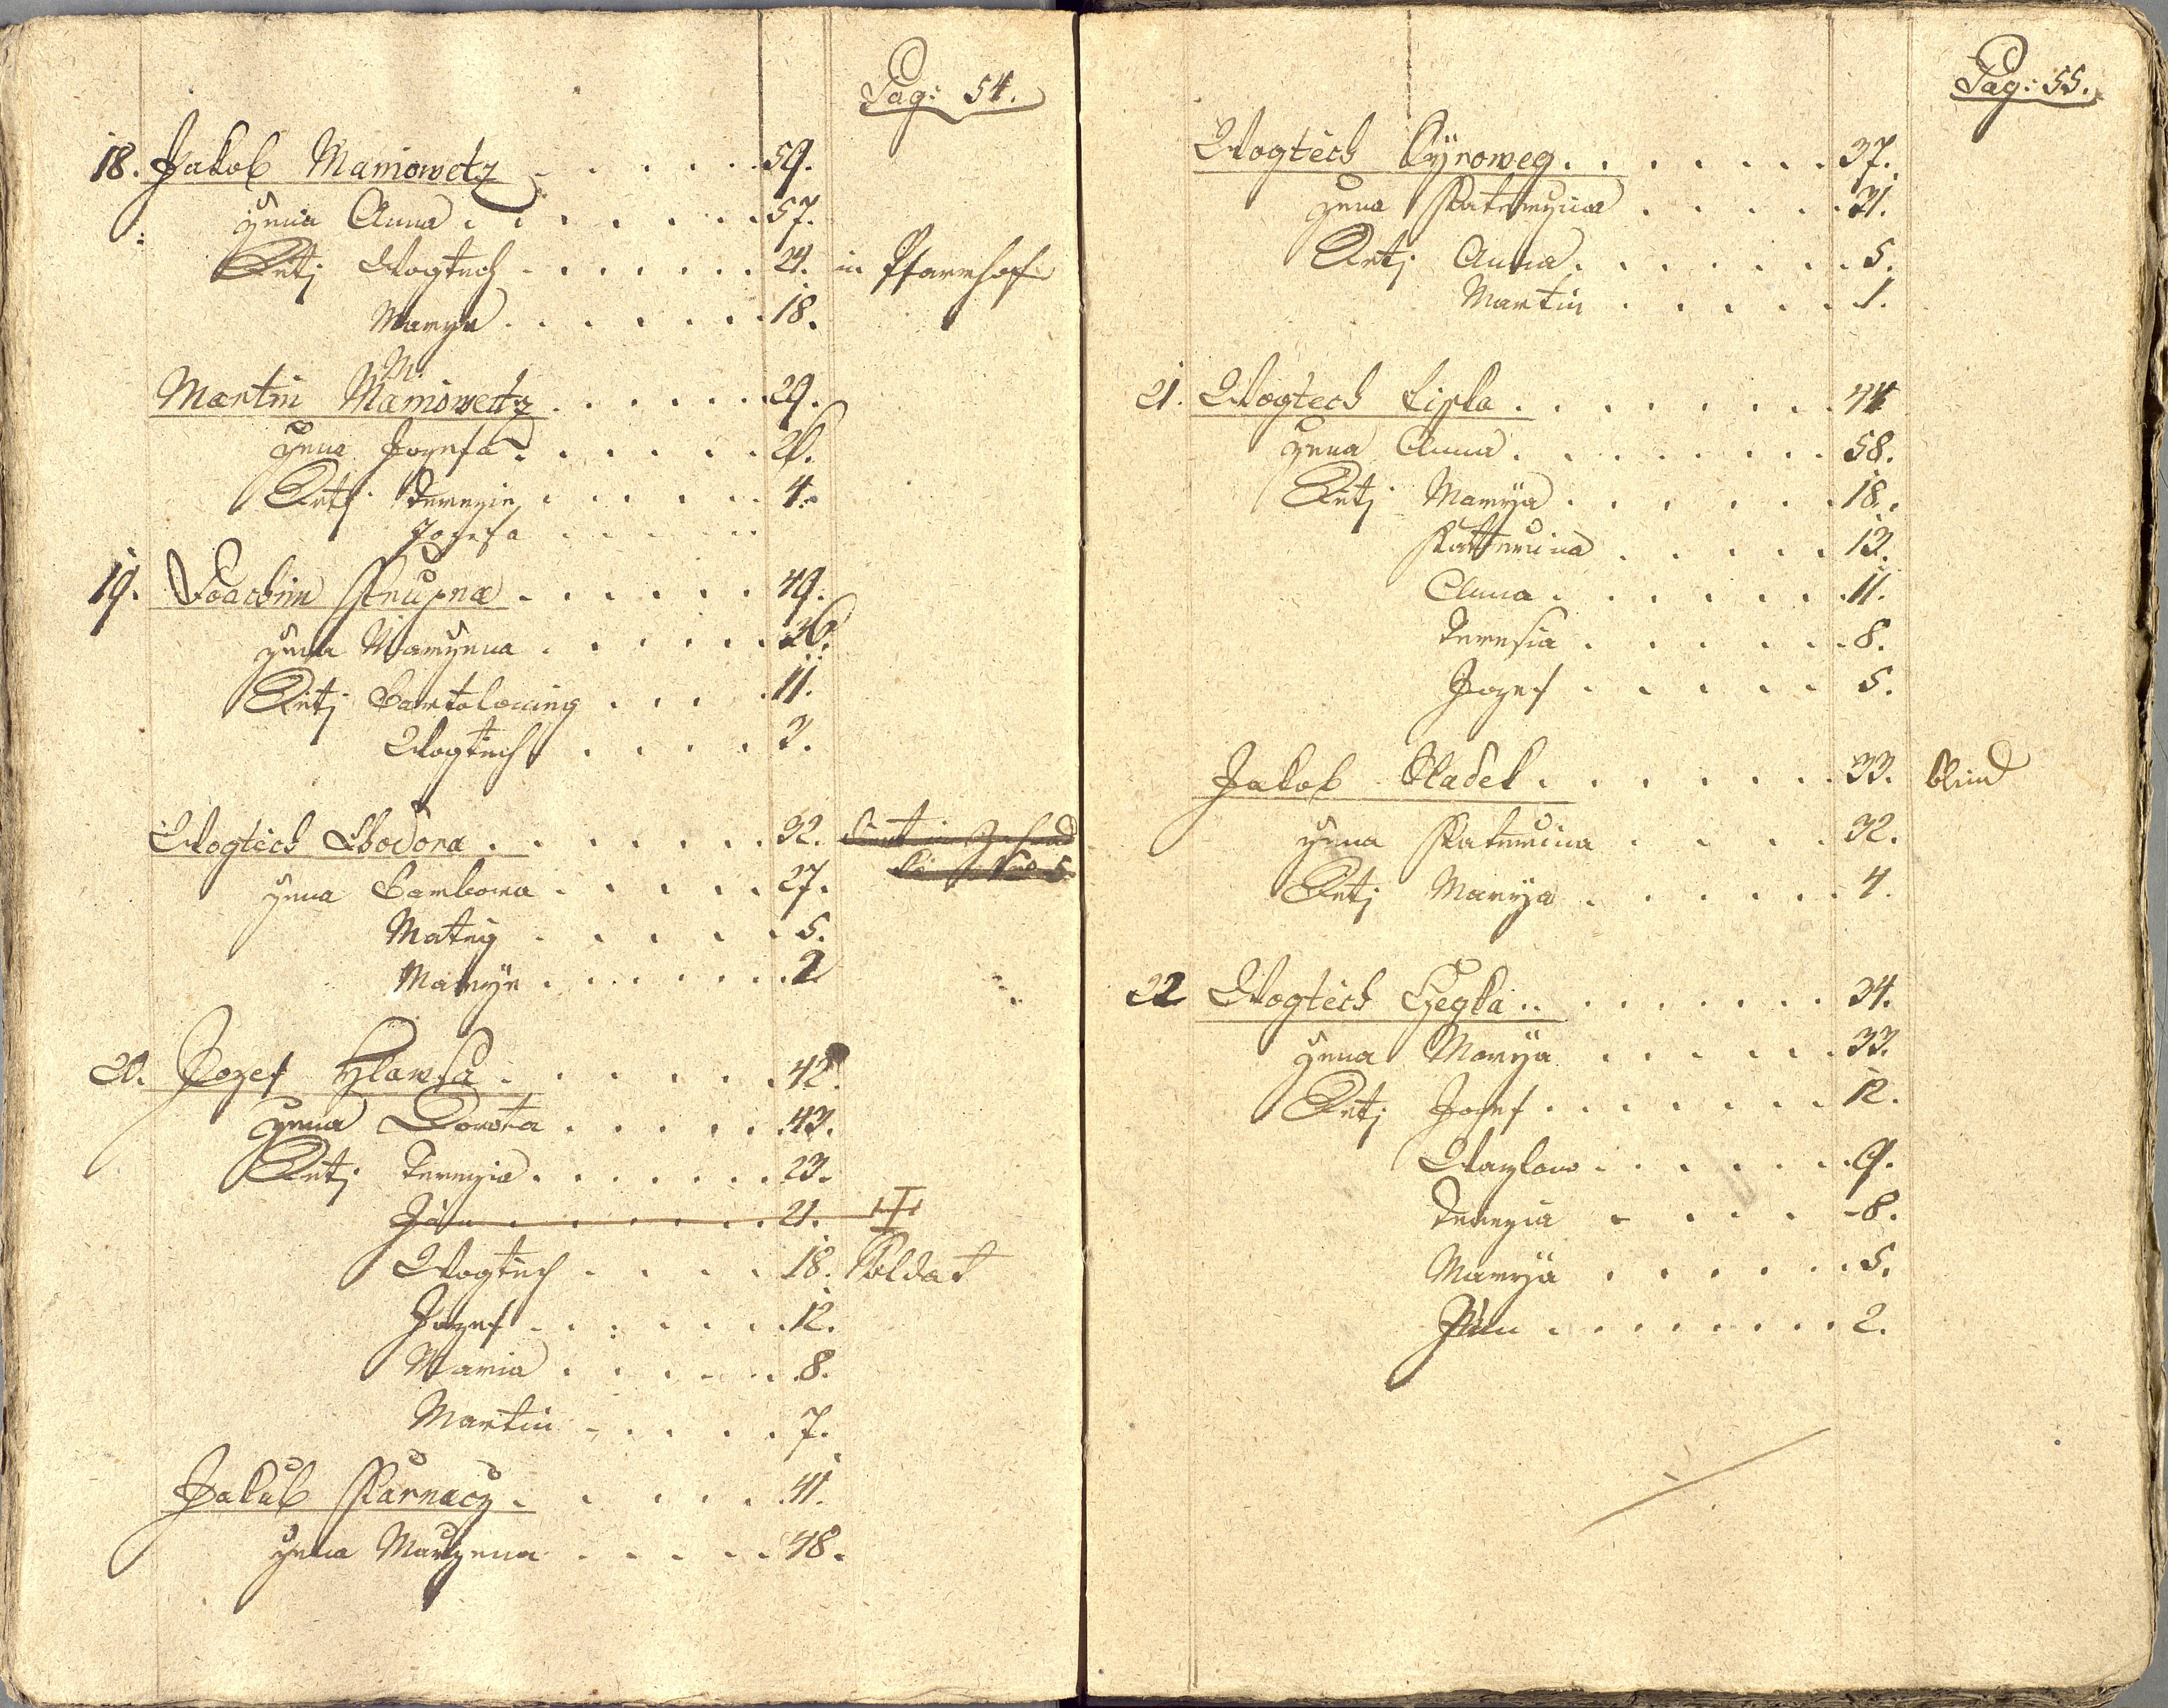 Pag: 54.
18. Jakob Maniowetz . . . . . 59.
zena Anna . . . . . . 57.
Ditj Wogtech . . . . . . 24. in Pfarrhof
Marya . . . . . . 18.
Martin Maniowetz . . . . . 29.
zena Jozefa . . . . . 26.
Ditj Terezie . . . . . 4.
Jozefa . . . . .
19. Joachim Krupna . . . . . 49.
zena Maryena . . . . . 36.
Ditj Bartolomieg . . . . 11.
Wogtiech . . . . 3.
Wogtiech Swoboda . . . . . . 32.
zena Barbora . . . . . 27.
Matieg . . . . . 5.
Marye . . . . . . 2
20. Jozef Hlawsa . . . . . . 42.
zena Dorota . . . . . 43.
Ditj Terezia . . . . . . 23.
Jan . . . . . . 21.
Wogtiech . . . . 18. Soldat
Jozef . . . . . . 12.
Maria . . . . . 8.
Martin . . . . . 7.
Jakub Karnacz . . . . . 41.
zena Maryena . . . . . 48.
Pag: 55.
Wogtiech . . . . . . . 37.
zena Katerzyna . . . . . 31.
Ditj Anna . . . . . . 5.
Martin . . . . . 1.
21. Wogtiech Lipka . . . . . . . 44
zena Anna . . . . . . . 58.
Ditj Marya . . . . . . 18.
Katterina . . . . . 13.
Anna . . . . . . 11.
Teresia . . . . . 8.
Jozef . . . . . 5.
Jakob Hladek . . . . . . 33. blind
zena Katerzina . . . . 32.
Ditj Marya . . . . . . 4.
22 Wogtiech Hegka . . . . . . . 34.
zena Marya . . . . . . 33.
Ditj Jozef . . . . . . . 12.
Wazlaw . . . . . . 9.
Terezia . . . . 8.
Marya . . . . . . 5.
Jan . . . . . . . . 2.